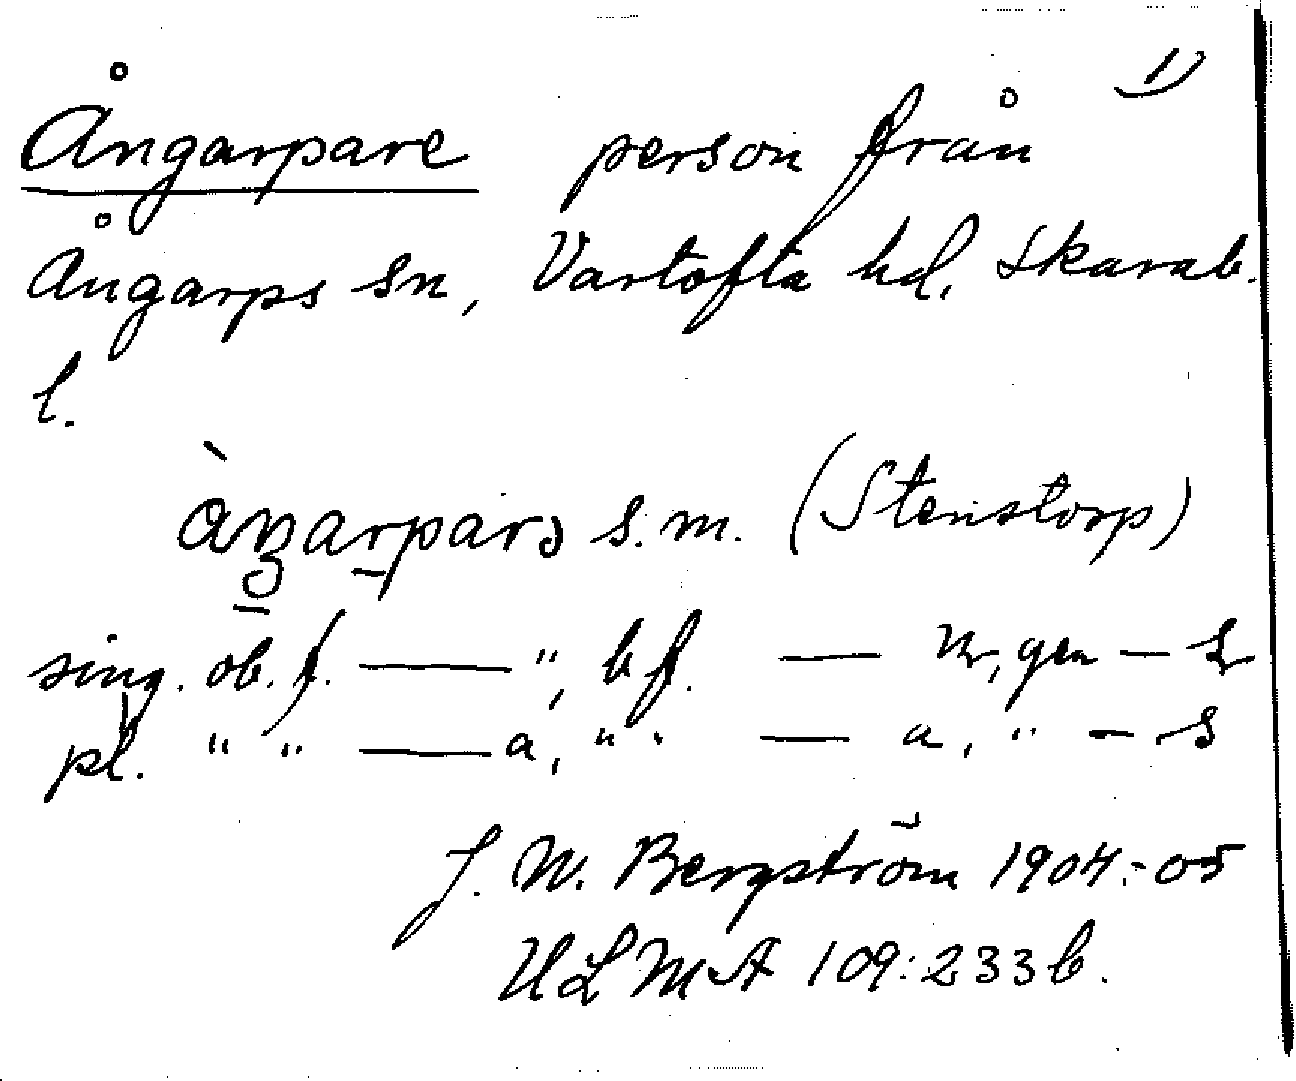 1)
Ångarpare person från
Ångarps sn, Vartofta hd, Skarab.
l.
s.m. (Stenstorp)
sing. ob. f. — ", b f. — n, gen — s
pl. " " — a, " " — a, " — s
J. W. Bergström 1904-05
ULMA 109:233 b.